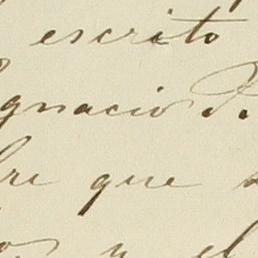 escrito
Ignacio P.
bre que
y el